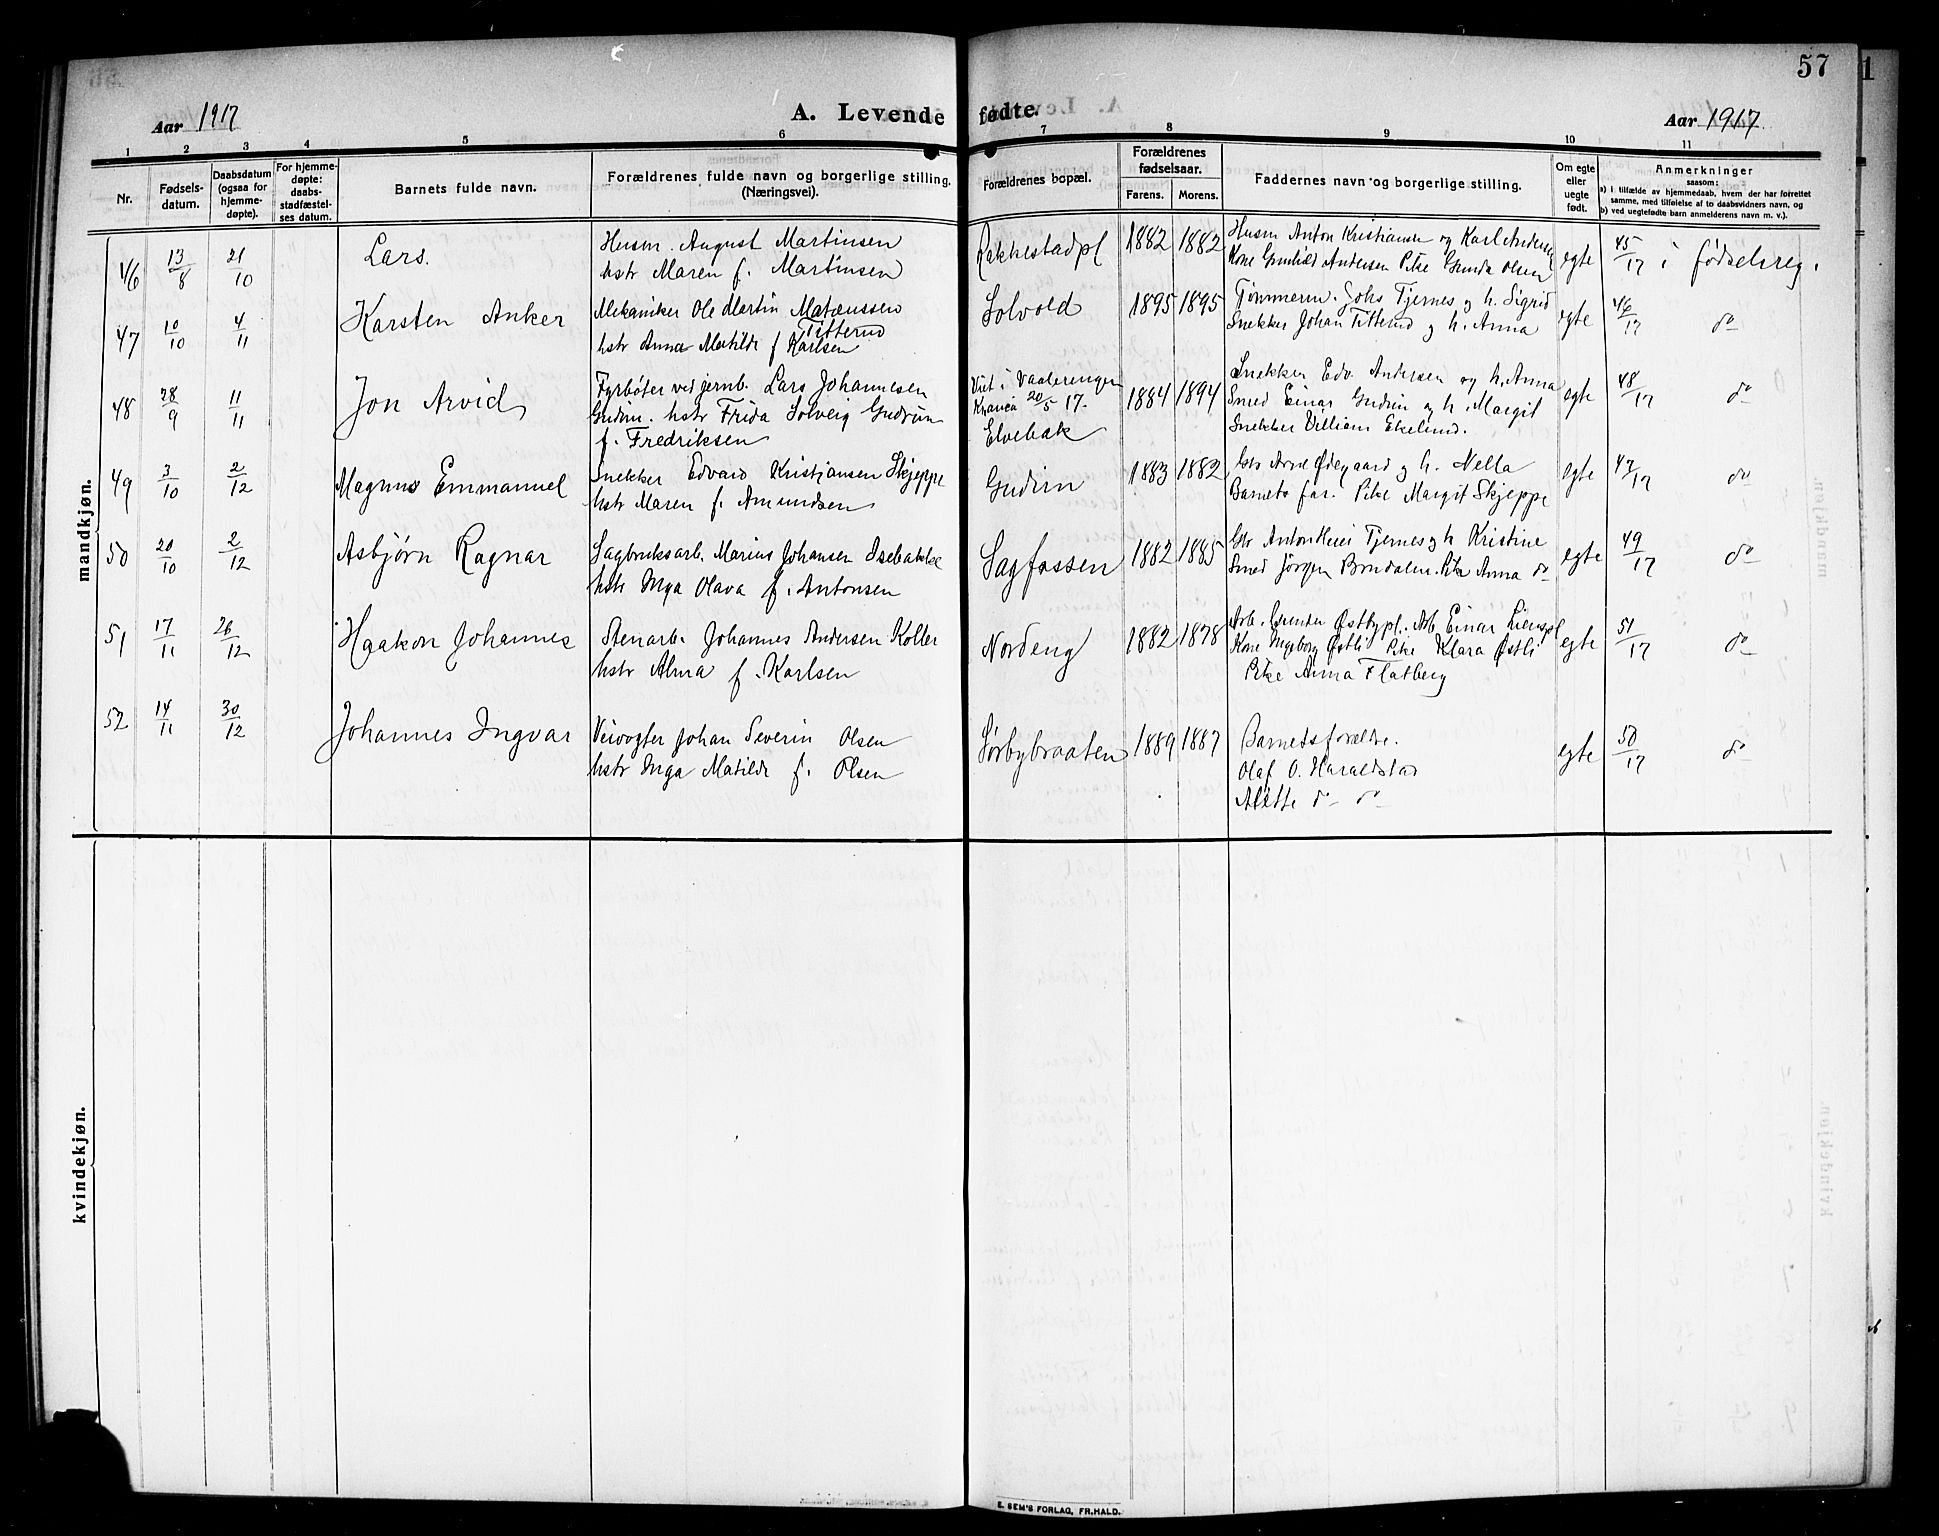 57
Aar 1917
A. Levende fødte.
Aar 1917.
1 2 3 4 5 6 7 8 9 10 11
Nr.
Fødsels-
datum.
Daabsdatum
(ogsaa for
hjemme-
døpte).
For hjemme-
døpte:
daabs-
stadfæstel-
ses datum.
Barnets fulde navn.
Forældrenes fulde navn og borgerlige stilling.
(Næringsvei).
Forældrenes bopæl.
Forældrenes
fødselsaar.
Farens. Morens.
Faddernes navn og borgerlige stilling.
Om egte
eller
uegte
født.
Anmerkninger
saasom:
a) i tilfælde av hjemmedaab, hvem der har forrettet
samme, med tilføielse af to daabsvidners navn, og
b) ved uegtefødte barn anmelderens navn m. v.).
mandkjøn.
46 13/8 21/10 Lars. Husm. August Martinsen
hstr Maren f. Martinsen
Rakkestadpl 1882 1882
Husm Anton Kristiansen og Karl Andersen
Kone Gunhild Andersen Pike Gunda Olsen
egte 45/17 i fødselsreg.
47 10/10 4/11 Karsten Anker Mekaniker Ole Martin Matæussen
Titterud
hstr Anna Matilde f Karlsen
Solvold 1895 1895
Tømmerm. Johs Tjernes og h. Sigrid
Snekker Johan Titterud og h. Anna
egte 46/17 do
48 28/9 11/11 Jon Arvid Fyrbøter ved jernb. Lars Johannesen
Gudim. hstr Frida Solveig Gudrun
f. Fredriksen
Viet i Vaalerengen
20/5 17.
Elvebak 1884 1894
Snekker Edv. Andersen og h. Anna
Smed Einar Gudim og h. Margit
Snekker Villiam Ekelund.
egte 48/17 do
49 3/10 2/12 Magnus Emmanuel Snekker Edvard Kristjansen Skjeppe
hstr Maren f. Amundsen
Gudim 1883 1882
Gbr Arne Ødegaard og h. Nella
Barnets far. Pike Margit Skjeppe
egte 47/17 do
50 20/10 2/12 Asbjørn Ragnar Sagbruksarb. Marius Johansen Isebakke
hstr Inga Olava f. Antonsen
Sagfossen 1882 1885
Gbr Anton Tjernes og h Kristine
Smed Jørgen Brudalen. Pike Anna do
egte 49/17 do
51 17/11 26/12 Haakon Johannes Stenarb. Johannes Andersen Koller
hstr Alma f. Karlsen
Nordeng 1882 1878
Arb. Østbypl. Arb Einar Lienspl
Kone Ingeborg Østli Pike Klara Østli
Pike Anna Flatberg
egte 51/17 do
52 14/11 30/12 Johannes Ingvar Veivogter Johan Severin Olsen
hstr Inga Matilde f. Olsen
Sørbybraaten 1889 1887
Barnets forældre.
Olaf O. Haraldstad
Alette do do
egte 50/17 do
kvindekjøn.
E. SEM'S FORLAG, FR.HALD.